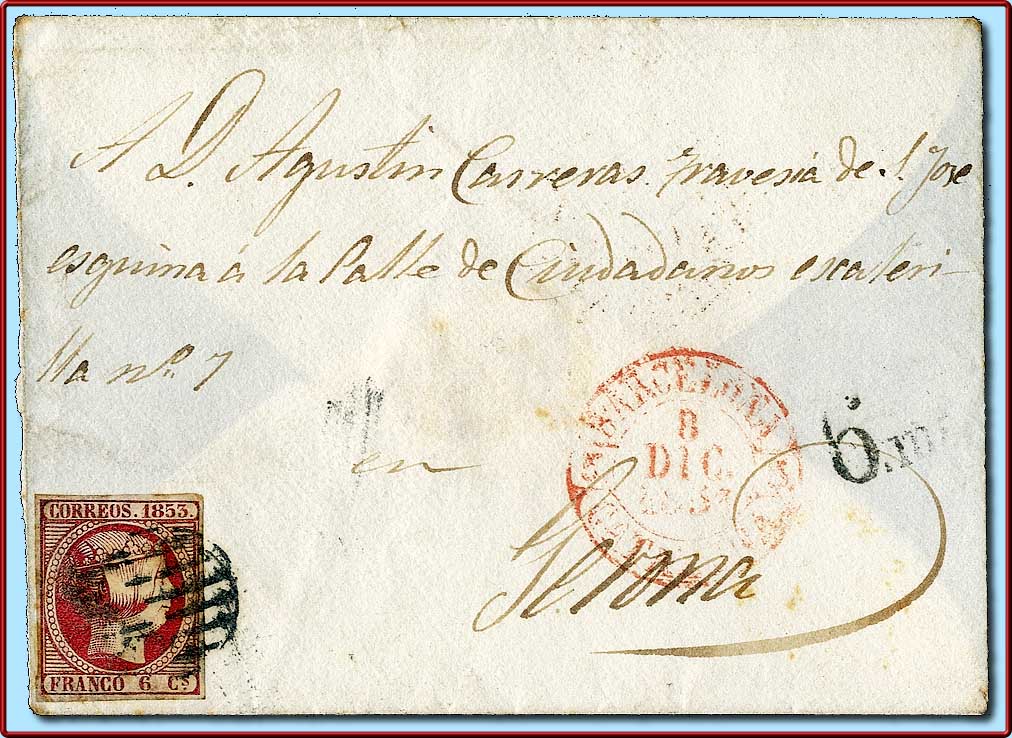 A D. Agustin Carreras. travesia de S. Jose
esquina á la Calle de Ciudadanos escaleri-
lla nº. 7
en
Gerona
BARCELONA
8
DIC.
6
CORREOS. 1853.
FRANCO 6 Cs